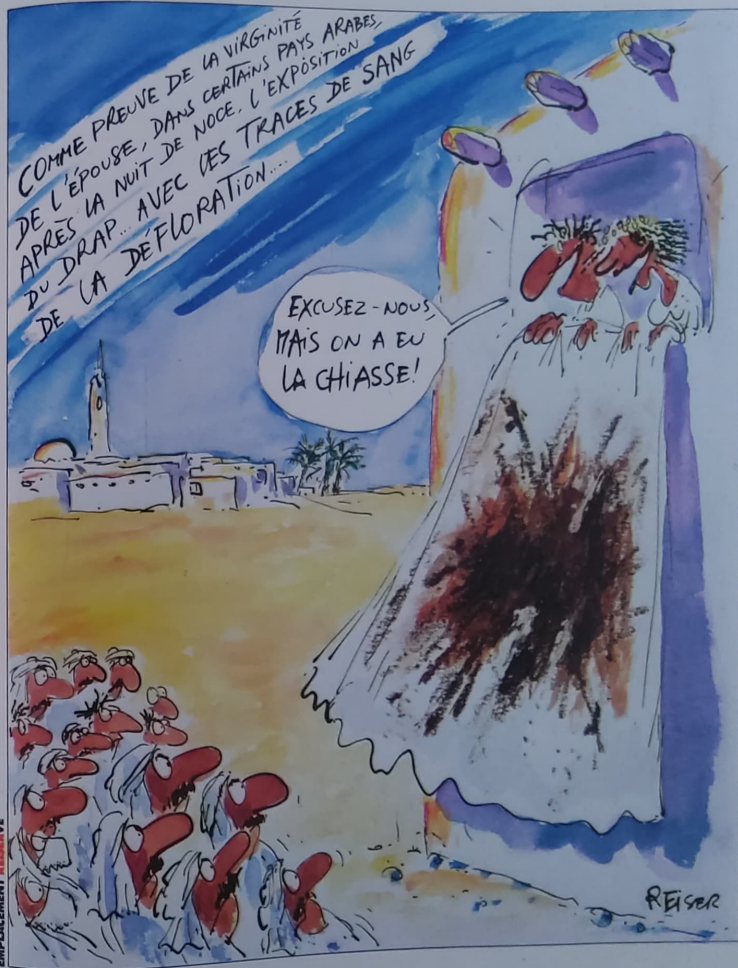 COMME PREUVE DE LA VIRGINITÉ
DE L'ÉPOUSE, DANS CERTAINS PAYS ARABES,
APRÈS LA NUIT DE NOCE, L'EXPOSITION
DU DRAP... AVEC LES TRACES DE SANG
DE LA DÉFLORATION....
EXCUSEZ-NOUS
MAIS ON A EU
LA CHIASSE!
REISER
EMPLACEMENT RÉSERVÉ